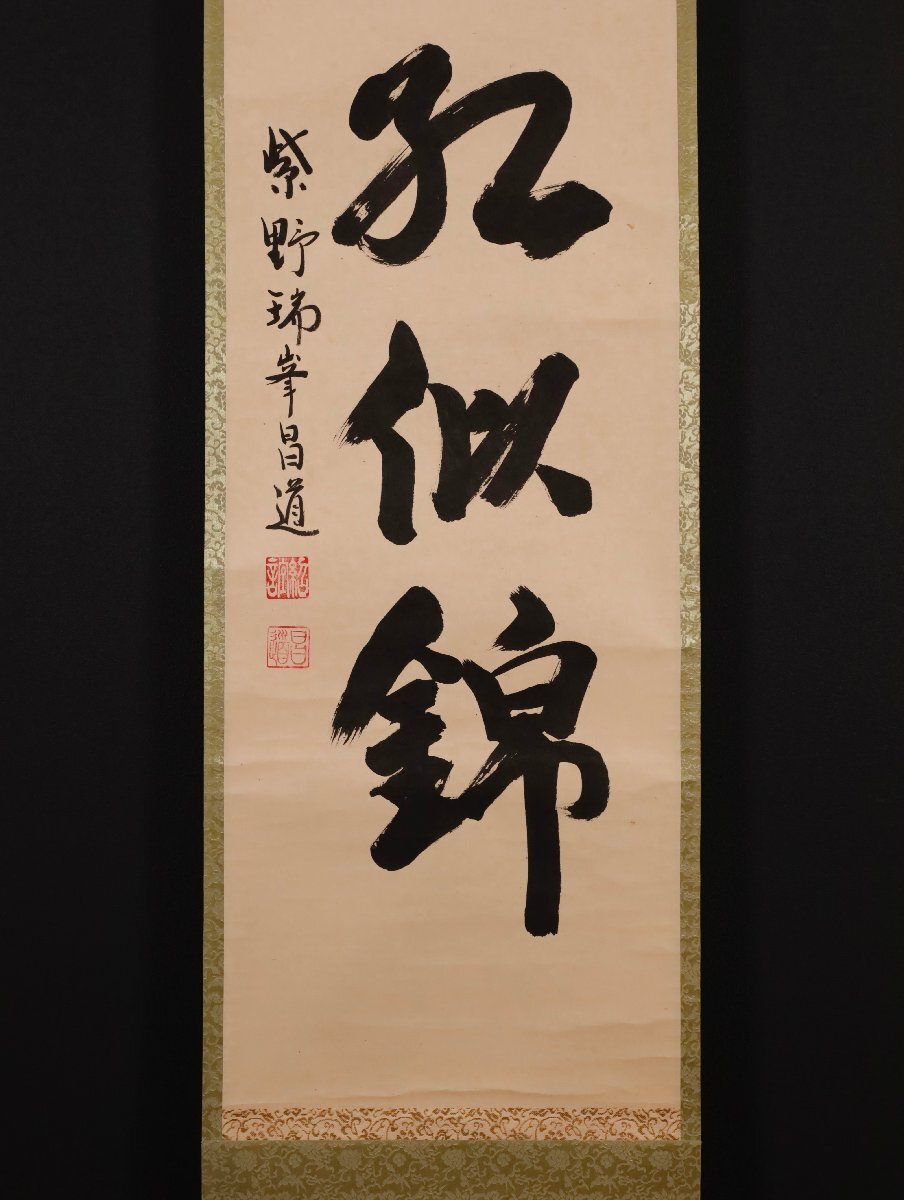 紅似錦
紫野瑞峯昌道
昌道